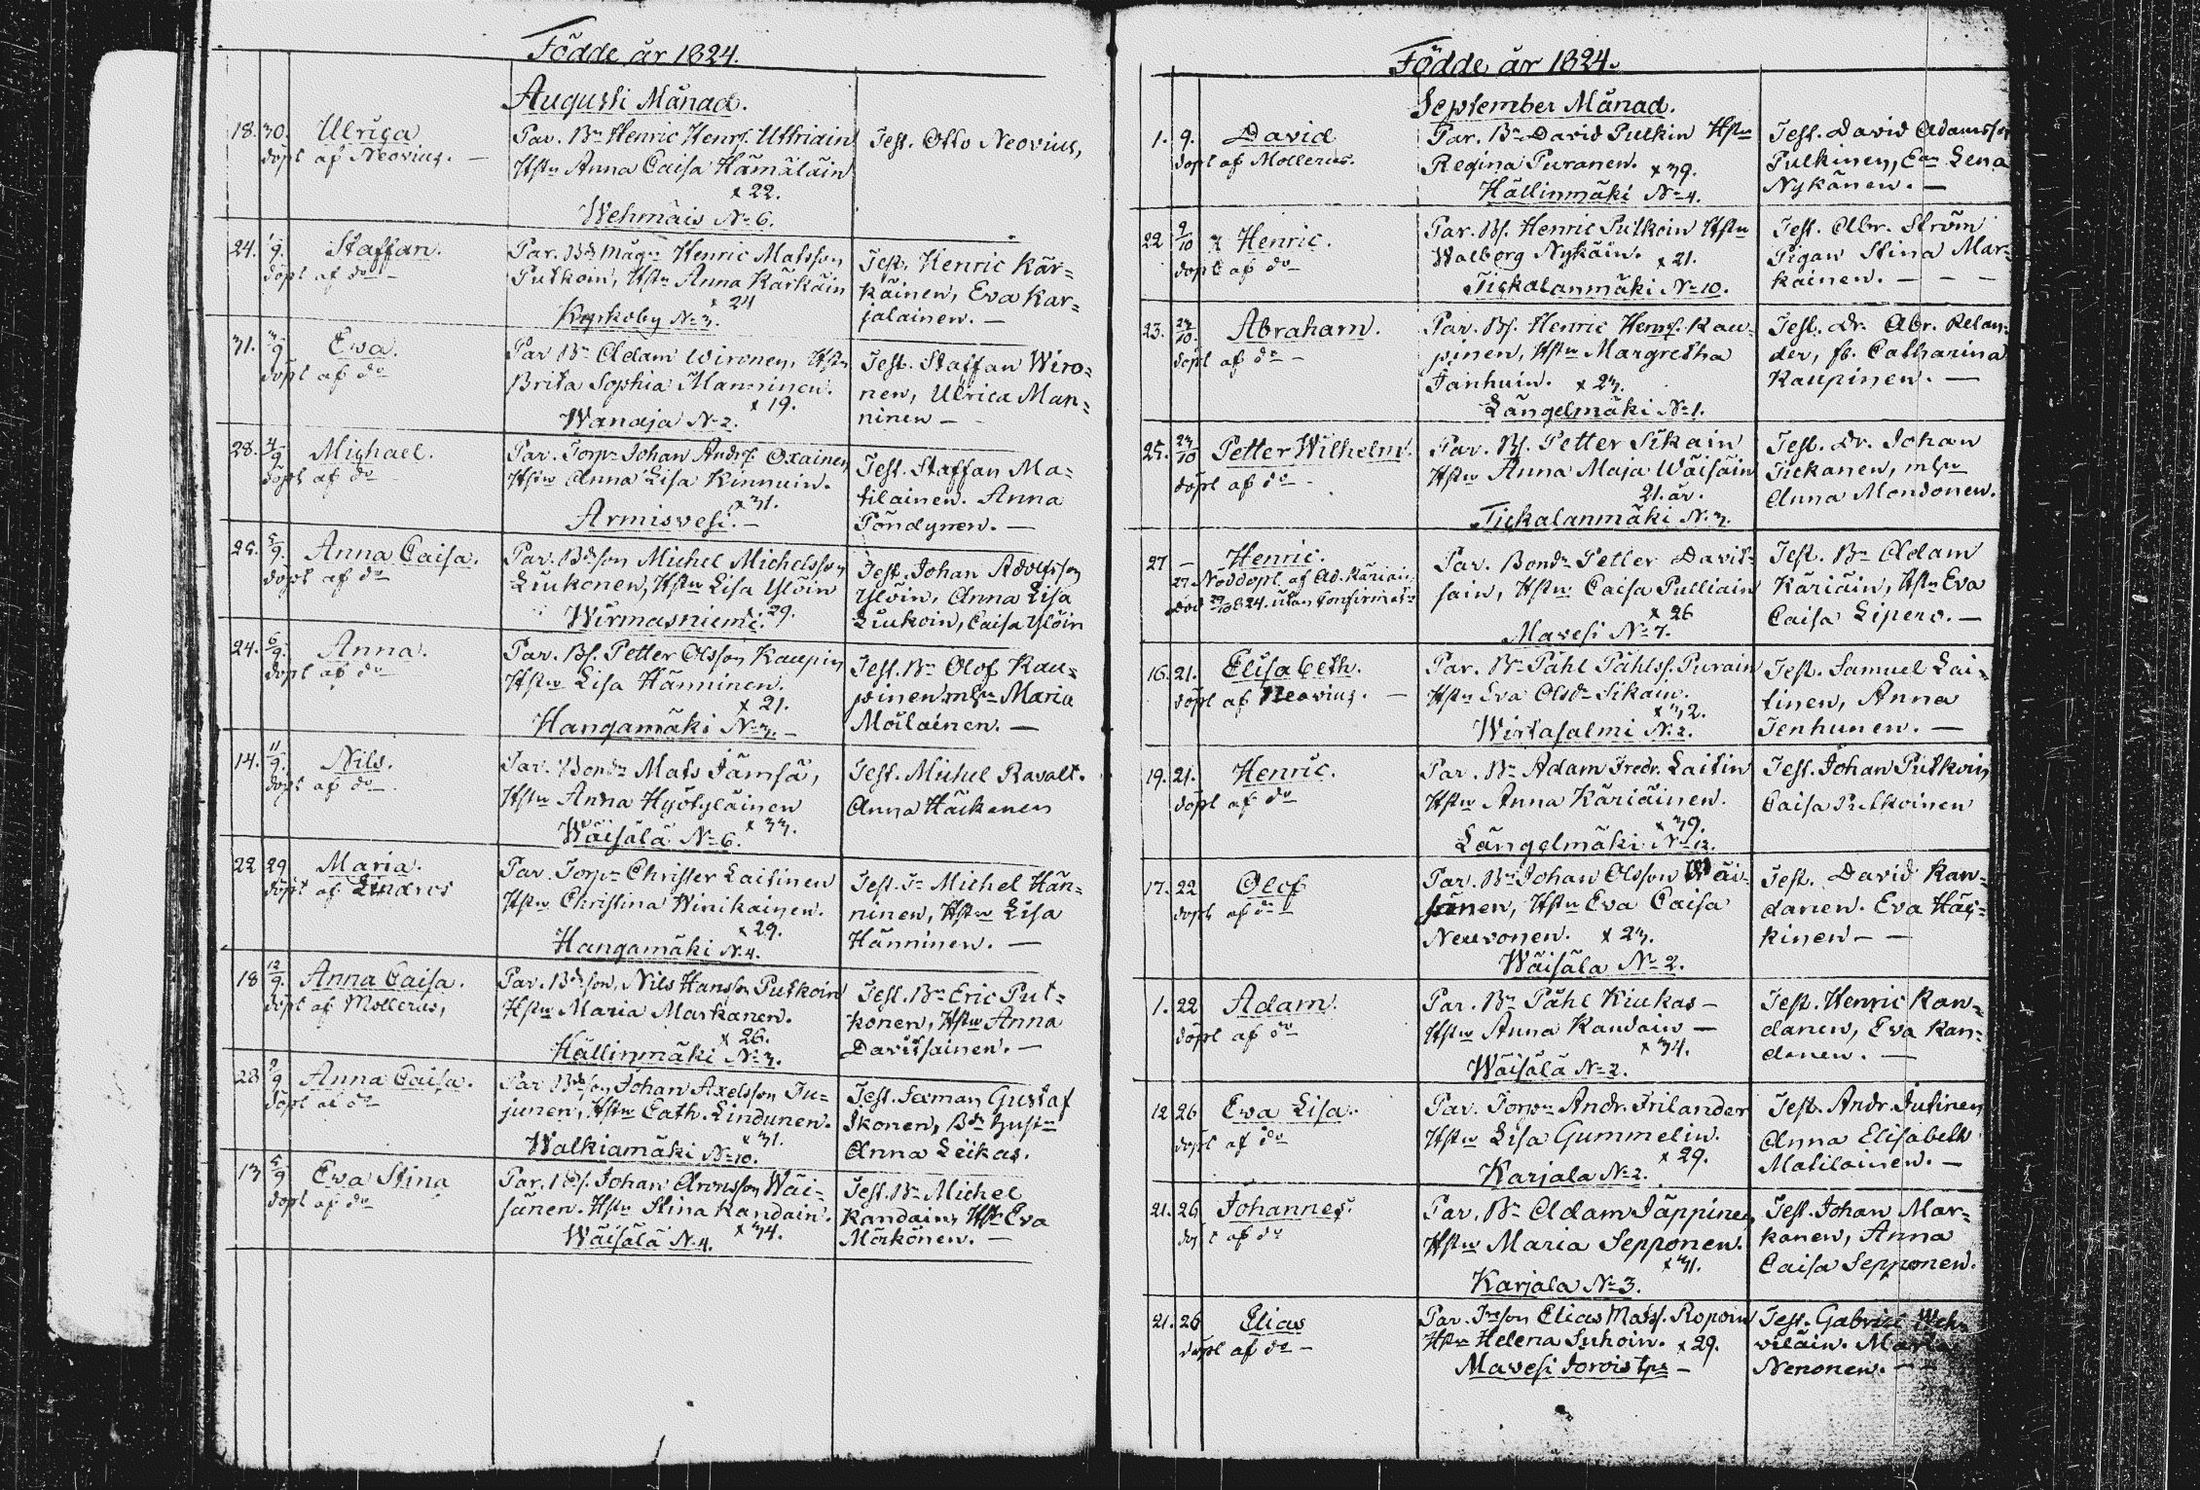 Födde år 1824.
Augusti Månad.
18. 30. Ulrica
döpt af Neovius. —
Par. Bn Henric Henrs. Uttriain
Hstru Anna Caisa Hämäläin
x 22.
Wehmais No 6.
Test. Otto Neovius,
24. 1/9. Staffan.
döpt af do —
Par. Bds måg Henric Matsson
Putkoin, Hstru Anna Kärkäin
x 24
Kyrkoby No 3.
Test. Henric Kär=
käinen, Eva Kar=
jalainen. —
31. 3/9 Ewa.
döpt af do
Par Bn Adam Wironen, Hstru
Brita Sophia Manninen.
x 19.
Wanaja No 2.
Test. Staffan Wiro=
nen, Ulrica Man=
ninen —
28. 4/9 Michael.
döpt af do
Par. Torpr Johan Andrs. Oxainen
Hstru Anna Lisa Kinnuin.
x 31.
Armisvesi. —
Test. Staffan Ma=
tilainen. Anna
Pöndynen. —
25. 5/9. Anna Caisa.
döpt af do
Par. Bdson Michel Michelsson
Liukonen, Hstru Lisa Ylöin
29.
Wirmasniemi.
Test. Johan Adolfsson
Ylöin, Anna Lisa
Liukoin, Caisa Ylöin
24. 6/9. Anna.
döpt af do
Par. Bs. Petter Olsson Kaupin
Hstru Lisa Hänninen.
x 21.
Hangamäki No 3. —
Test. Bn Olof Kau=
pinen. mhu Maria
Moilainen. —
14. 11/9. Nils.
döpt af do —
Par. Bonden Mats Jämsä,
Hstru Anna Hyötyläinen
x 33.
Wäisälä No 6.
Test. Michel Ravalt.
Anna Häckänen
22 29 Maria.
döpt af Lindros
Par. Torpr Christer Laitinen
Hstru Christina Winikainen.
x 29.
Hangamäki N. 4.
Test. Michel Hän=
ninen, Hstru Lisa
Hänninen. —
18 12/9. Anna Caisa.
döpt af Mollerus,
Par. Bdson, Nils Hansson Putkoin
Hstru Maria Markanen.
x 26.
Hällinmäki No 3.
Test. Bn Eric Put=
konen, Hstru Anna
Davitsainen. —
28 9/9 Anna Caisa.
döpt af do
Par Bdson Johan Axelsson Ju=
junen, Hstru Cath. Lindunen.
x 31.
Walkiamäki No 10.
Test. Sexman Gustaf
Ikonen, Bd hustru
Anna Leikas.
13 5/9 Ewa Stina
döpt af do
Par. Bs. Johan Aronsson Wäi=
sänen. Hstru Stina Kandain.
x 34.
Wäisälä N. 4.
Test. Bn Michel
Kandain, Hstr Eva
Mörkönen. —
Födde år 1824.
September Månad.
1. 9. David
döpt af Mollerus.
Par. Bn David Pulkin Hstru
Regina Puranen. x 39.
Hällinmäki No 4.
Test. David Adamsson
Pulkinen, Lena
Nykänen. —
22 9/10 Henric.
döpt af do
Par. Bs. Henric Putkoin Hstru
Walborg Nykäin. x 21.
Tickalanmäki No 10.
Test. Abr. Ström
Pigan Stina Mar=
kainen. — — —
23. 24/10. Abraham.
döpt af do —
Par. Bs. Henric Henrs. Kau=
pinen, Hstru Margretha
Janhuin. x 23.
Längelmäki No 1.
Test. Dr. Abr. Relan=
der, Catharina
Kaupinen. —
25. 24/10 Petter Wilhelm.
döpt af do —
Par. Bs. Petter Sikain
Hstru Anna Maja Wäisäin
21. år.
Tickalanmäki N. 3.
Test. Dr. Johan
Tickanen, mhu
Anna Mondonen.
27 — Henric.
27 Nöddöpt. af Ad. Käriäin
död 29/10 824. utan Confirmat
Par. Bondn Petter Davit=
sain, Hstru Caisa Pulliain
x 26
Mavesi No 7.
Test. Bn Adam
Käriäin, Hstru Eva
Caisa Lipero. —
16. 21. Elisabeth.
döpt af Neovius. —
Par. Bn Påhl Påhlss. Purain
Hstru Eva Olsdr Sikain.
x 32.
Wirtasalmi N. 2.
Test. Samuel Lai=
tinen, Anna
Jenhunen. —
19. 21. Henric.
döpt af do
Par. Bn Adam Fredr. Laitin
Hstru Anna Käriäinen.
x 39.
Längelmäki No 12.
Test. Johan Putkoin
Caisa Putkoinen
17. 22 Olof
döpt af do
Par. Bn Johan Olsson Wäi=
sänen, Hstru Eva Caisa
Neuvonen. x 23.
Wäisäla No 2.
Test. David Kan=
danen. Eva Häy=
kinen — —
1. 22 Adam.
döpt af do
Par. Bn Påhl Kiukas —
Hstru Anna Kandain —
x 34.
Wäisälä No 2.
Test. Henric Kan=
danen, Eva Kan=
danen. —
12 26 Ewa Lisa.
döpt af do
Par. Torpr Andr. Frilander
Hstru Lisa Gummelin.
x 29.
Karjala No 2.
Test. Andr. Jutinen
Anna Elisabeth
Matilainen. —
21. 26 Johannes.
döpt af do
Par. Bn Adam Jäppinen
Hstru Maria Sepponen.
x 31.
Karjala No 3.
Test. Johan Mar=
kanen, Anna
Caisa Sepponen.
21. 26 Elias
döpt af do —
Par. Elias Matss. Ropoin
Hstru Helena Inhoin. x 29.
Mavesi Jorois
Test. Gabriel Weh=
viläin. Maria
Nenonen. — —